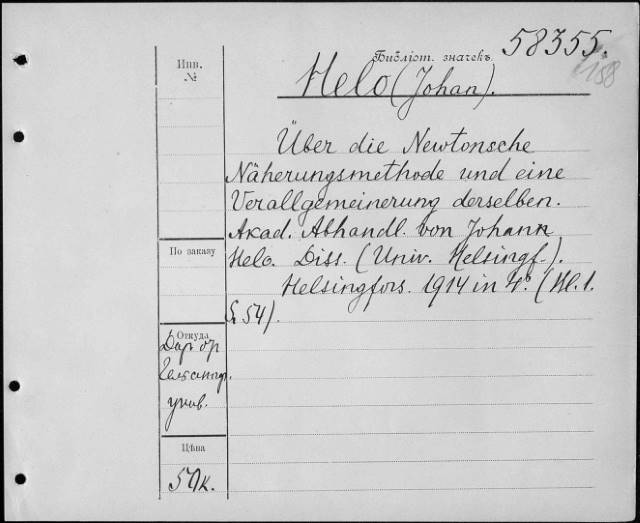 58355.
Библіот. значекъ
Инв.
№
Helo (Johan).
1158
Über die Newtonsche
Näherungsmethode und eine
Verallgemeinerung derselben.
Akad. Abhandl. von Johann
По заказу
Helo. Diss. (Univ. Helsingf.).
Helsingfors. 1914 in 4° (Bl. 1.
S. 54).
Откуда
Даръ
унив.
Цѣна
50к.